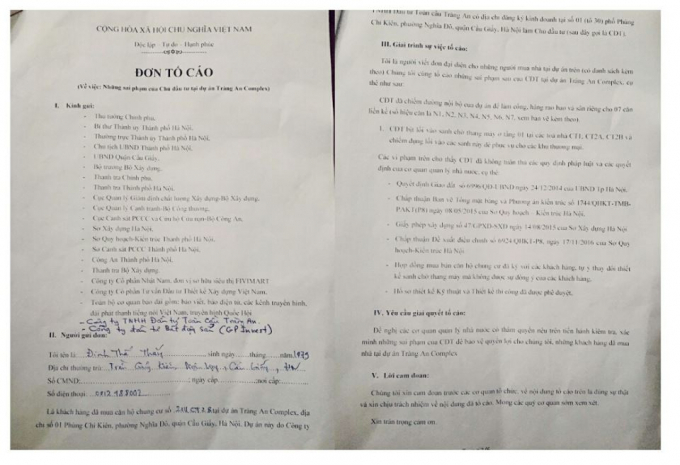 CỘNG HÒA XÃ HỘI CHỦ NGHĨA VIỆT NAM
Độc lập - Tự do - Hạnh phúc
ĐƠN TỐ CÁO
(Về việc: Những sai phạm của Chủ đầu tư tại dự án Tràng An Complex)
I. Kính gửi:
- Thủ tướng Chính phủ,
- Bí thư Thành ủy Thành phố Hà Nội,
- Thường trực Thành ủy Thành phố Hà Nội,
- Chủ tịch UBND Thành phố Hà Nội,
- UBND Quận Cầu Giấy,
- Bộ trưởng Bộ Xây dựng,
- Thanh tra Chính phủ,
- Thanh tra Thành phố Hà Nội,
- Cục Quản lý Giám định chất lượng Xây dựng-Bộ Xây dựng,
- Cục Quản lý Cạnh tranh-Bộ Công thương,
- Cục Cảnh sát PCCC và Cứu hộ Cứu nạn-Bộ Công An,
- Sở Xây dựng Hà Nội,
- Sở Quy hoạch-Kiến trúc Thành phố Hà Nội,
- Sở Cảnh sát PCCC Thành phố Hà Nội,
- Công An Thành phố Hà Nội,
- Thanh tra Bộ Xây dựng,
- Công ty Cổ phần Nhất Nam, đơn vị sở hữu siêu thị FIVIMART
- Công ty Cổ phần Tư vấn Đầu tư Thiết kế Xây dựng Việt Nam,
- Toàn bộ cơ quan báo đài gồm: báo viết, báo điện tử, các kênh truyền hình, đài phát thanh tiếng nói Việt Nam, truyền hình Quốc Hội
- Công ty TNHH Đầu tư Toàn Cầu Tràng An
- Công ty đầu tư Bất động sản (GP Invest)
II. Người gửi đơn:
Tôi tên là: Đinh Thế ,sinh ngày tháng năm 1979
Địa chỉ thường trú: Trần , Cầu Giấy, HN
Số CMND: ngày cấp nơi cấp:
Số điện thoại:
Là khách hàng đã mua căn hộ chung cư số tại dự án Tràng An Complex, địa
chỉ số 01 Phùng Chí Kiên, phường Nghĩa Đô, quận Cầu Giấy, Hà Nội. Dự án này do Công ty
TNHH Đầu tư Toàn cầu Tràng An có địa chỉ đăng ký kinh doanh tại số 01 (tổ 30) phố Phùng
Chí Kiên, phường Nghĩa Đô, quận Cầu Giấy, Hà Nội làm Chủ đầu tư (sau đây gọi là CDT).
III. Giải trình sự việc tố cáo:
Tôi là người viết đơn đại diện cho những người mua nhà tại dự án trên (có danh sách kèm
theo) Chúng tôi cùng tố cáo những sai phạm sau của CDT tại dự án Tràng An Complex, cụ
thể như sau:
CDT đã chiếm đường nội bộ của dự án để làm cổng, hàng rào bao và sân riêng cho 07 căn
liền kề (có số hiệu căn là N1, N2, N3, N4, N5, N6, N7, xem bản vẽ kèm theo).
1. CDT bịt lối vào sảnh chờ thang máy ở tầng 01 tại các tòa nhà CT1, CT2A, CT2B và
chiếm dụng lối vào các sảnh này để phục vụ cho các khu thương mại.
Các vi phạm trên cho thấy CDT đã không tuân thủ các quy định pháp luật và các quyết
định của cơ quan quản lý nhà nước, cụ thể
- Quyết định Giao đất số 6996/QĐ-UBND ngày 24/12/2014 của UBND Tp Hà Nội.
- Chấp thuận Bản vẽ Tổng mặt bằng và Phương án kiến trúc số 1744/QHKT-TMB-
PAKT(P8) ngày 08/05/2015 của Sở Quy hoạch - Kiến trúc Hà Nội.
- Giấy phép xây dựng số 47/GPXD-SXD ngày 14/08/2015 của Sở Xây dựng Hà Nội
- Chấp thuận Đề xuất điều chỉnh số 6924/QHKT-P8, ngày 17/11/2016 của Sở Quy
hoạch-Kiến trúc Hà Nội.
- Hợp đồng mua bán căn hộ chung cư đã ký với các khách hàng, tự ý thay đổi thiết
kế sảnh chờ thang máy mà không được sự đồng ý của các khách hàng.
- Hồ sơ thiết kế Kỹ thuật và Thiết kế thi công đã được phê duyệt.
IV. Yêu cầu giải quyết tố cáo:
Đề nghị các cơ quan quản lý nhà nước có thẩm quyền nêu trên tiến hành kiểm tra, xác
minh những sai phạm của CDT để bảo vệ quyền lợi cho chúng tôi, những khách hàng đã mua
nhà tại dự án Tràng An Complex
V. Lời cam đoan:
Chúng tôi xin cam đoan trước các cơ quan tổ chức, về nội dung tố cáo trên là đúng sự thật
và xin chịu trách nhiệm về nội dung đã tố cáo. Mong các quý cơ quan sớm xem xét.
Xin trân trọng cảm ơn.